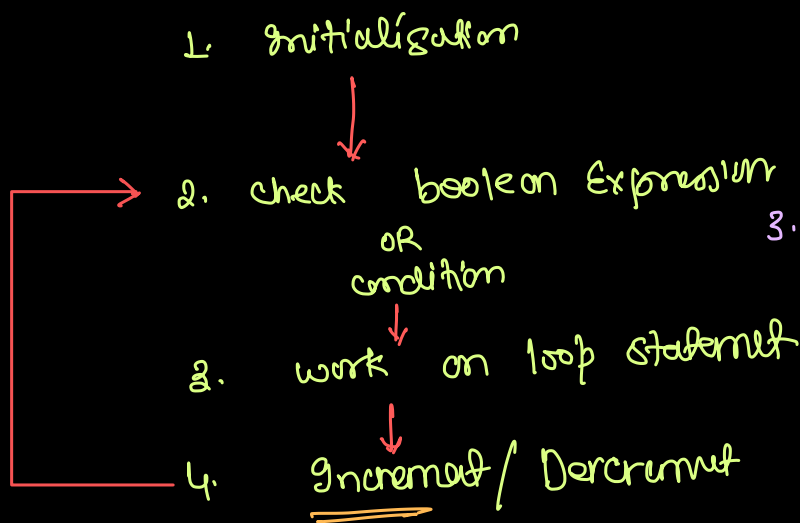 1. Initialisation
2. check boolean Expression
3.
OR
condition
3. work on loop statemet
4. Incremat / Dercremut